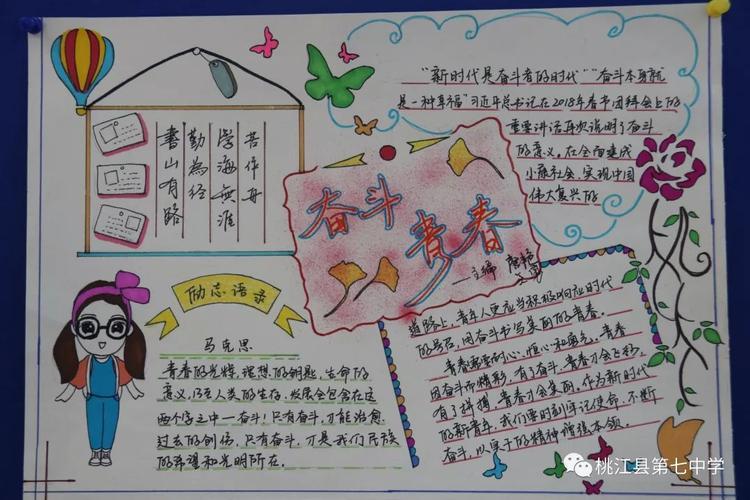 書山有路
勤為经
学海無涯
苦作舟
奋斗
青春
——主编
“新时代是奋斗者的时代”“奋斗本身就
是一种幸福”习近平总书记在2018年春节团拜会上的
重要讲话再次说明了奋斗
的意义,在全面建成
小康社会,实现中国
伟大复兴的
道路上,青年人更应当积极响应时代
的号召,用奋斗书写美丽的青春。
青春需要耐心、恒心和勇气。青春
因奋斗而精彩,有了奋斗,青春才会飞扬,
有了拼搏,青春才会美丽,作为新时代
的新青年,我们要时刻牢记使命,不断
奋斗,以实干的精神增强本领。
励志语录
马克思
青春的光辉,理想的钥匙,生命的
意义,乃至人类的生存、发展全包含在这
两个字之中—奋斗!只有奋斗,才能治愈
过去的创伤,只有奋斗,才是我们民族
的希望和光明所在。
桃江县第七中学